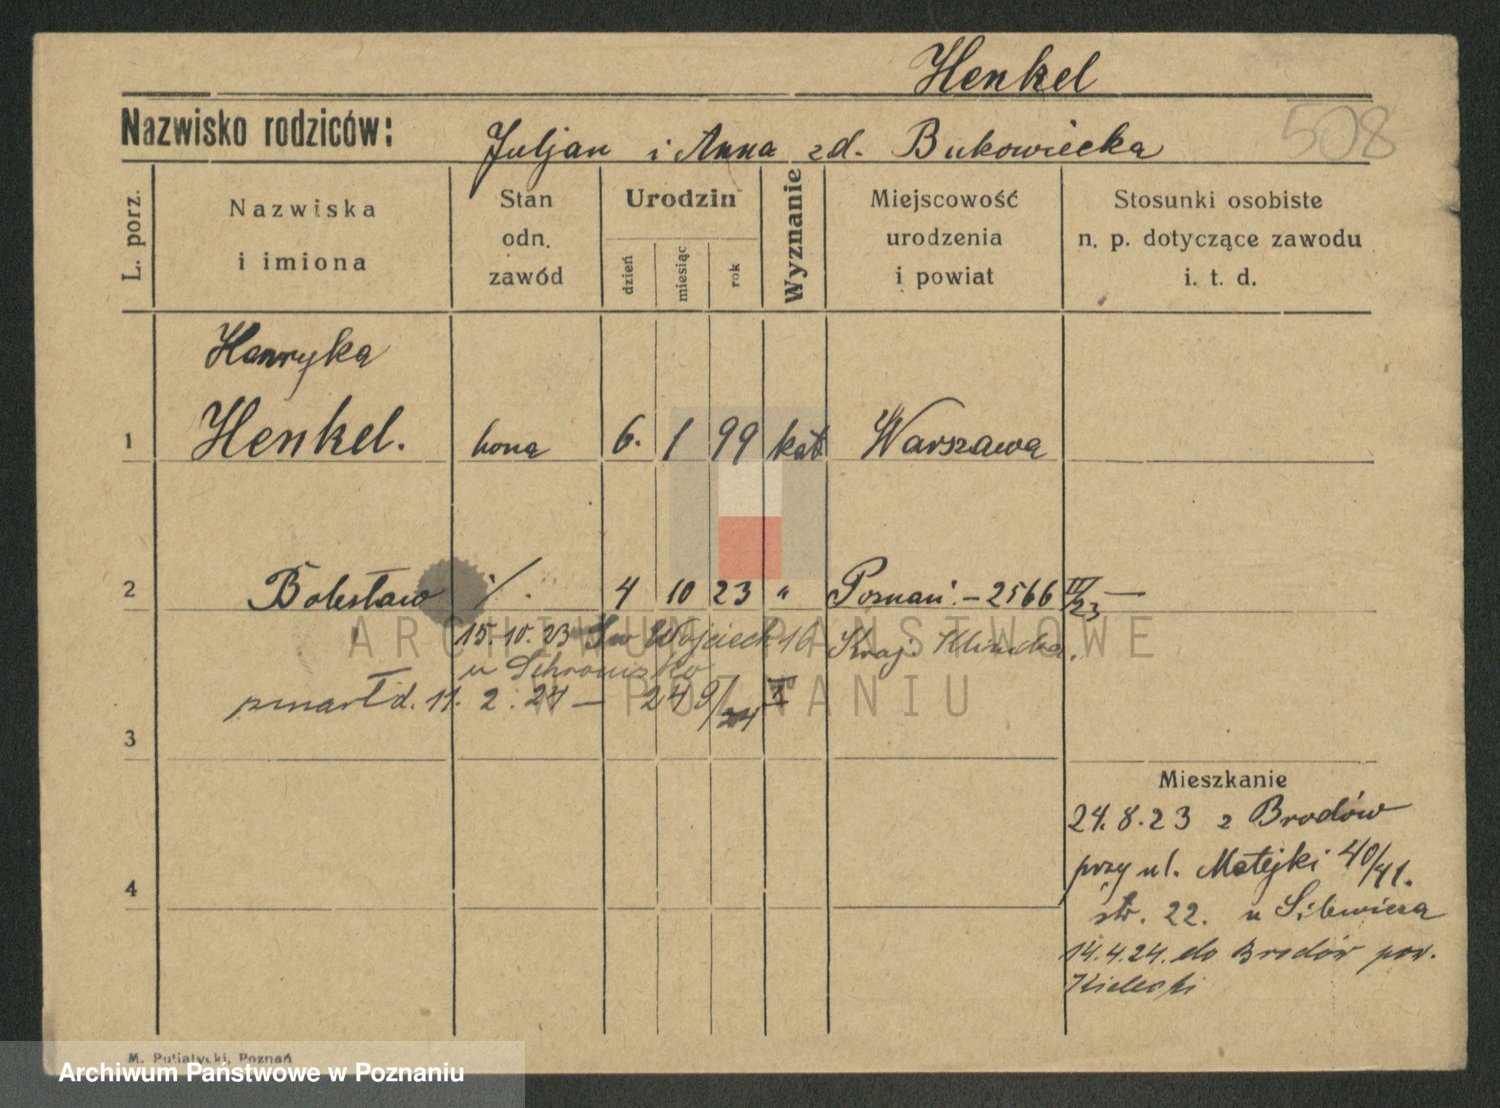 Henkel
508
Nazwisko rodziców: Juljan i Anna zd. Bukowiecka
L. porz.
Nazwiska i imiona
Stan odn. zawód
Urodzin
dzień miesiąc rok
Wyznanie
Miejscowość urodzenia i powiat
Stosunki osobiste n. p. dotyczące zawodu i. t. d.
Henryka
1 Henkel. 6. 1 99 kat Warszawa
2 Bolesław /. 4 10 23 " Poznań. - 2566 IV/23 —
15.10.23 Św Wojciech 16 Kraj. Klinika.
w Schronisko
zmarł d. 11. 2. 24 — 249/24 IV
3
Mieszkanie
24.8.23 z Brodów
przy ul. Matejki 40/41.
4
str. 22. u
14.4.24. do Brodów pow.
Kielecki
M. Putiatycki, Poznań
ARCHIWUM PAŃSTWOWE
W POZNANIU
Archiwum Państwowe w Poznaniu